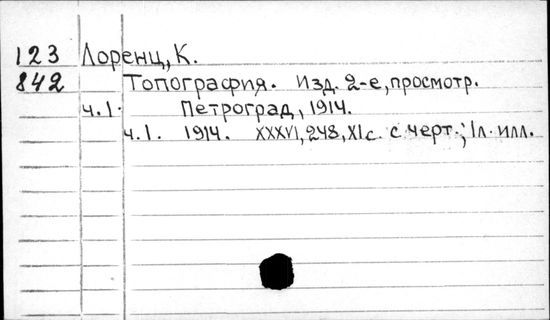 123 Лоренц, К.
842 Топография. Изд. 2-е, просмотр.
ч.1. Петроград, 1914.
ч.1. 1914. XXXVI, 248, XI с. с черт.; 1 л. илл.